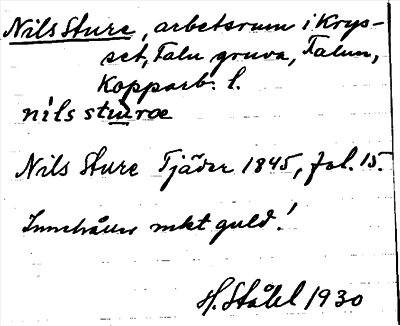 Nils Sture, arbetsrum i Krys-
set, Falu gruva, Falun,
Kopparb. l.
nils sturæ
Nils Sture Tjäder 1845, fol. 15.
Innehåller mkt guld!
H. Ståhl 1930